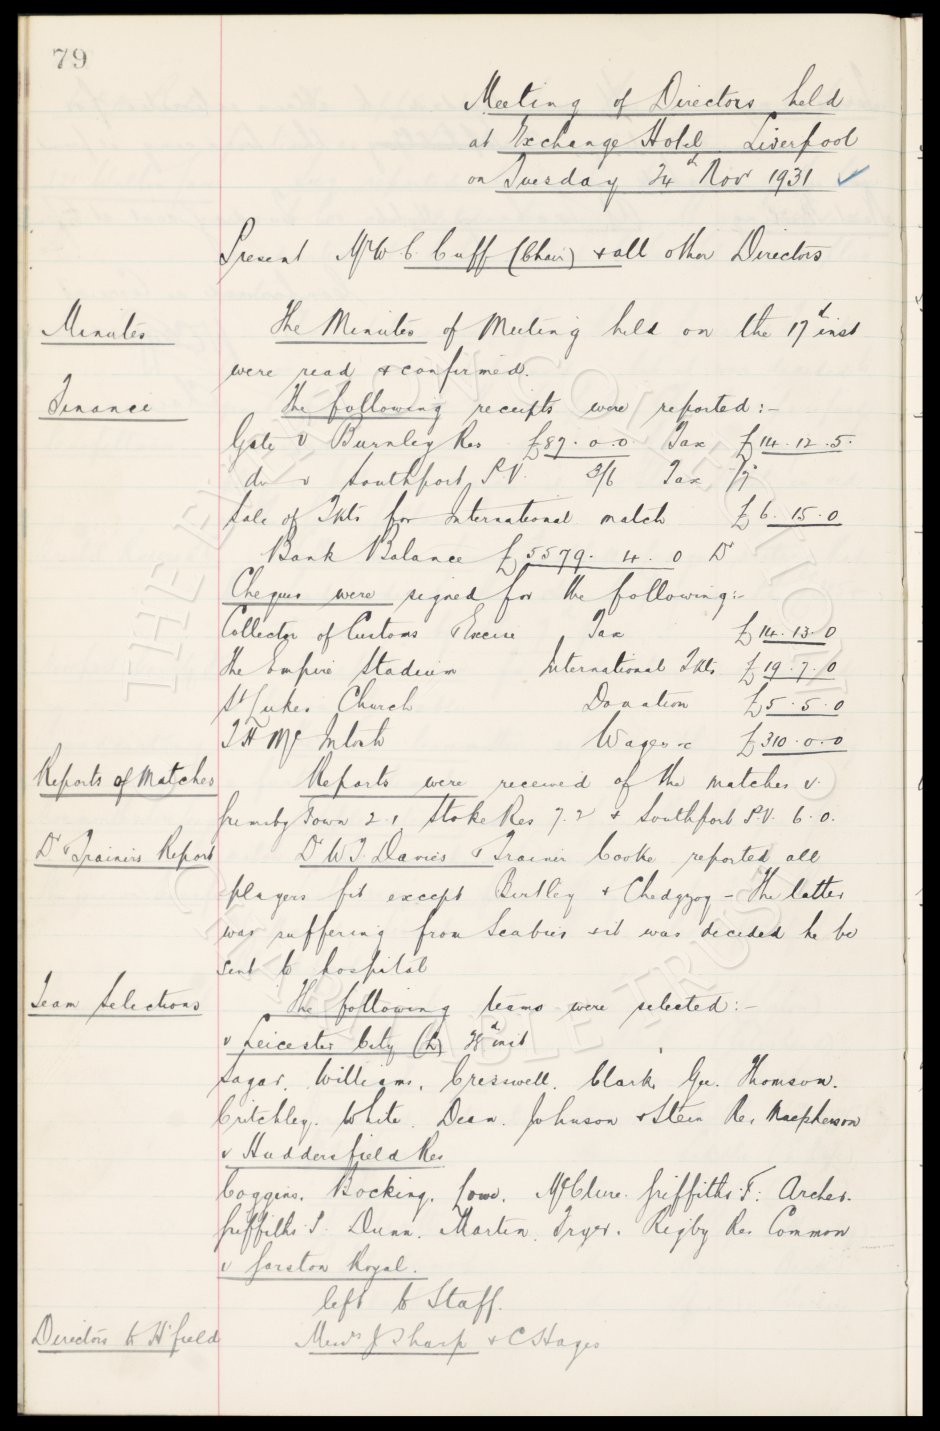 79
Meeting of Directors held
at Exchange Hotel Liverpool
on Tuesday 24th Nov 1931 ✓
Present Mr W C Cuff (Chair) & all other Directors
Minutes The Minutes of Meeting held on the 17th inst
were read & confirmed.
Finance The following receipts were reported:-
Gate v Burnley Res £87.0.0 Tax £14.12.5.
do v Southport P.V. 3/6 Tax 7d
Sale of Tkts for International match £6.15.0
Bank Balance £5579.4.0 Dr
Cheques were signed for the following:-
Collector of Customs & Excise Tax £14.13.0
The Empire Stadium International Tkts £19.7.0
St Lukes Church Donation £5.5.0
T H McIntosh Wages &c £310.0.0
Reports of Matches Reports were received of the matches v.
Grimsby Town 2.1 Stoke Res 7.2 & Southport P.V. 6.0.
Dr & Trainers Report Dr W T Davies & Trainer Cooke reported all
players fit except Birtley & Chedgzoy - The latter
was suffering from Scabies & it was decided he be
sent to hospital
Team Selections The following teams were selected:-
v Leicester City (h) 28th inst
Sagar. Williams. Cresswell. Clark. Gee. Thomson.
Critchley. White. Dean. Johnson & Stein Re. Macpherson
v Huddersfield Res
Coggins. Bocking. Lowe. McClure. Griffiths. F: Archer.
Griffiths. T. Dunn. Martin. Fryer. Rigby Re. Common
v Garston Royal.
left to Staff.
Directors to H'field Messrs J Sharp & C S Hayes
THE EVERTON COLLECTION
CHARITABLE TRUST